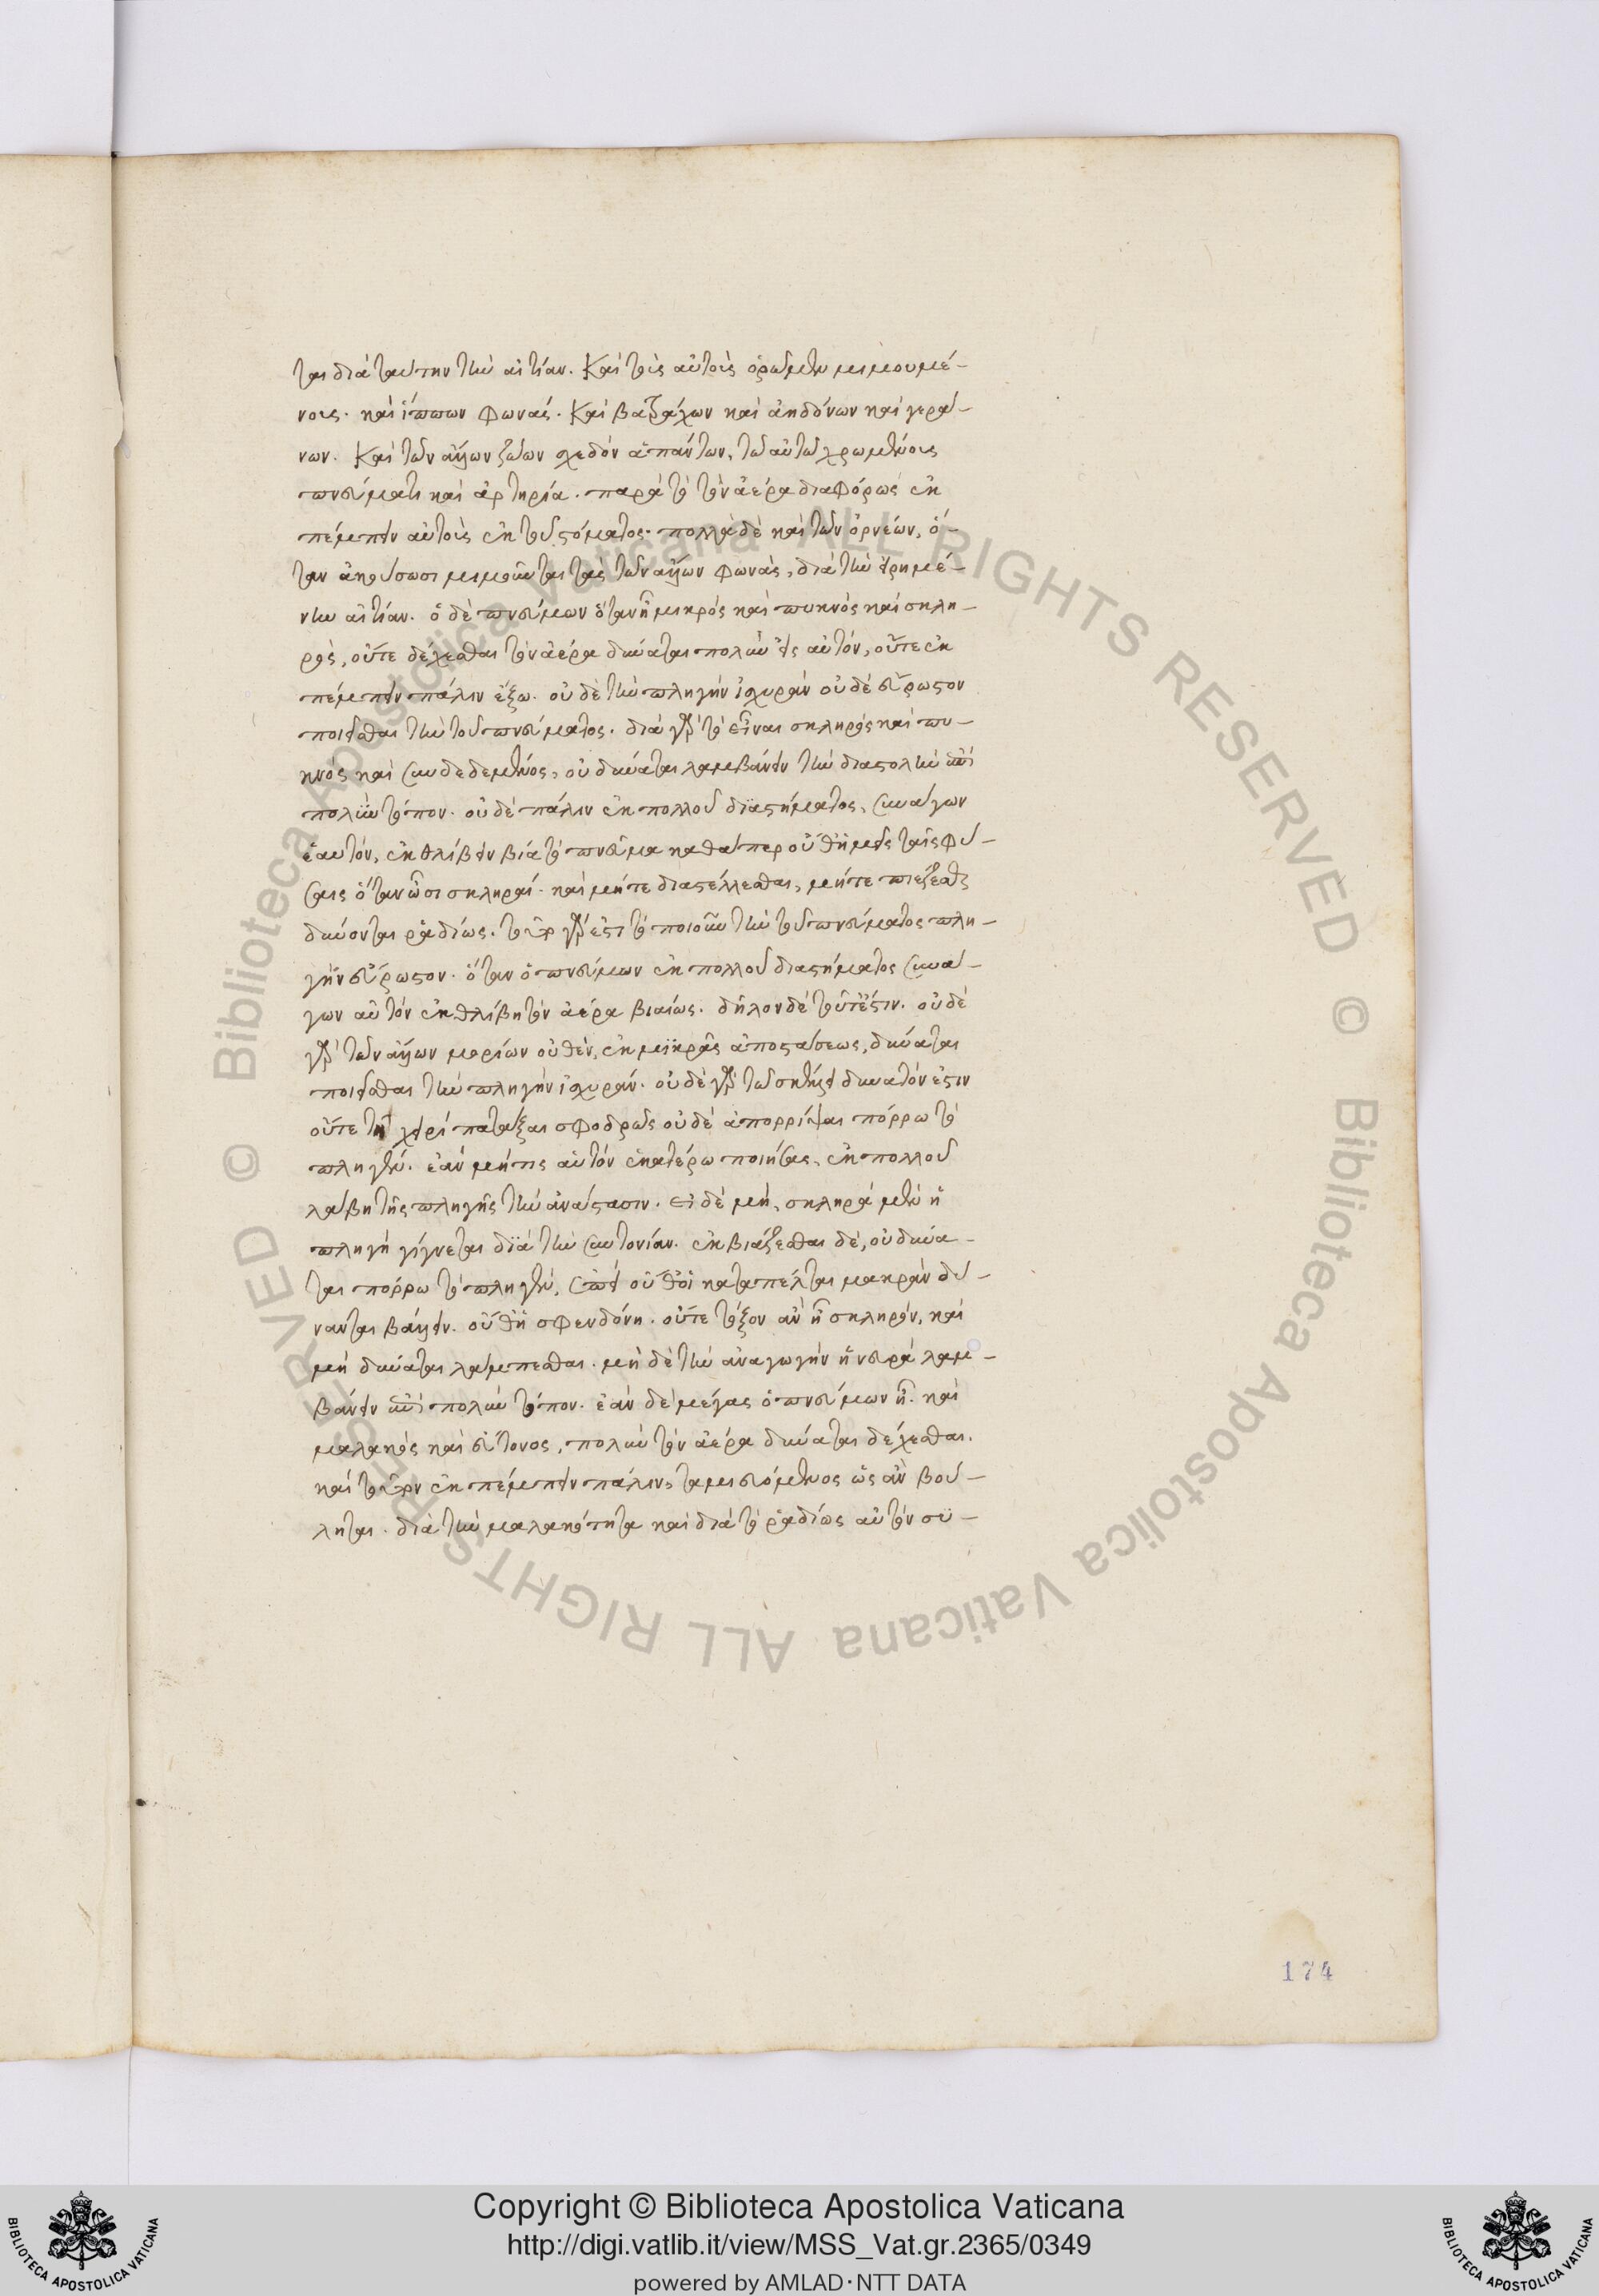 ται διὰ ταύτην τὴν αἰτίαν. Καὶ τοῖς αὐτοῖς ὁρῶμεν μιμουμέ-
νοις. καὶ ἵππων φωνάς. Καὶ βατράχων καὶ ἀηδόνων καὶ γερά-
νων. Καὶ τῶν ἄλλων ζώων σχεδὸν ἁπάντων, τῶ αὐτῶ χρωμένοις
πνεύματι καὶ ἀρτηρία. παρὰ τὸ τὸν ἀέρα διαφόρως ἐκ
πέμπειν αὐτοῖς ἐκ τοῦ στόματος. πολλὰ δὲ καὶ τῶν ὀρνέων, ὅ-
ταν ἀκούσωσι μιμοῦνται τὰς τῶν ἄλλων φωνὰς, διὰ τὴν εἰρημέ-
νην αἰτίαν. ὁ δὲ πνεύμων ὅταν ἦ μικρὸς καὶ πυκνὸς καὶ σκλη-
ρὸς, οὔτε δέχεσθαι τὸν ἀέρα δύναται πολὺν εἰς αὐτόν, οὔτε ἐκ
πέμπειν πάλιν ἔξω. οὐδὲ τὴν πληγὴν ἰσχυρὰν οὐδὲ εὔρωστον
ποιεῖσθαι τὴν τοῦ πνεύματος. διὰ γὰρ τὸ εἶναι σκληρὸς καὶ πυ-
κνὸς καὶ συνδεδεμένος, οὐ δύναται λαμβάνειν τὴν διαστολὴν ἐπὶ
πολὺν τόπον. οὐδὲ πάλιν ἐκ πολλοῦ διαστήματος, συνάγων
ἑαυτόν, ἐκθλίβειν βία τὸ πνεῦμα καθάπερ οὔθ' ἡμεῖς ταῖς φύ-
σαις ὅταν ὦσι σκληραί. καὶ μήτε διαστέλλεσθαι, μήτε πιέζεσθαι
δύνονται ῥαδίως. τοῦτο γάρ ἐστι τὸ ποιοῦν τὴν τοῦ πνεύματος πλη-
γὴν εὔρωστον. ὅταν ὁ πνεύμων ἐκ πολλοῦ διαστήματος συνά-
γων αὐτόν ἐκθλίβη τὸν ἀέρα βιαίως. δῆλον δὲ τοῦτ' ἔστιν. οὐδὲ
γὰρ τῶν ἄλλων μορίων οὐθὲν, ἐκ μικρᾶς ἀποστάσεως, δύναται
ποιεῖσθαι τὴν πληγὴν ἰσχυράν. οὐδὲ γὰρ τῶ σκέλει δυνατόν ἐστιν
οὔτε τῆ χειρὶ πατάξαι σφοδρῶς οὐδὲ ἀπορρίψαι πόρρω τὸ
πληγέν. ἐὰν μή τις αὐτόν ἑκατέρω ποιήσας, ἐκ πολλοῦ
λάβη τῆς πληγῆς τὴν ἀνάστασιν. Εἰ δὲ μὴ, σκληρὰ μὲν ἡ
πληγὴ γίγνεται διὰ τὴν συντονίαν. ἐκβιάζεσθαι δὲ, οὐ δύνα-
ται πόρρω τὸ πληγέν, ἐπεὶ οὔθ' οἱ καταπέλται μακρὰν δύ-
νανται βάλλειν. οὔθ' ἡ σφενδόνη. οὔτε τόξον ἂν ἦ σκληρόν, καὶ
μὴ δύναται κάμπεσθαι. μὴ δὲ τὴν ἀναγωγὴν ἡ νευρὰ λαμ-
βάνειν ἐπὶ πολὺν τόπον. ἐὰν δὲ μέγας ὁ πνεύμων ἦ. καὶ
μαλακὸς καὶ εὔτονος, πολὺν τὸν ἀέρα δύναται δέχεσθαι.
καὶ τοῦτον ἐκπέμπειν πάλιν, ταμιευόμενος ὡς ἂν βού-
ληται. διὰ τὴν μαλακότητα καὶ διὰ τὸ ῥαδίως αὐτὸν συ-
174
Copyright © Biblioteca Apostolica Vaticana
http://digi.vatlib.it/view/MSS_Vat.gr.2365/0349
powered by AMLAD·NTT DATA